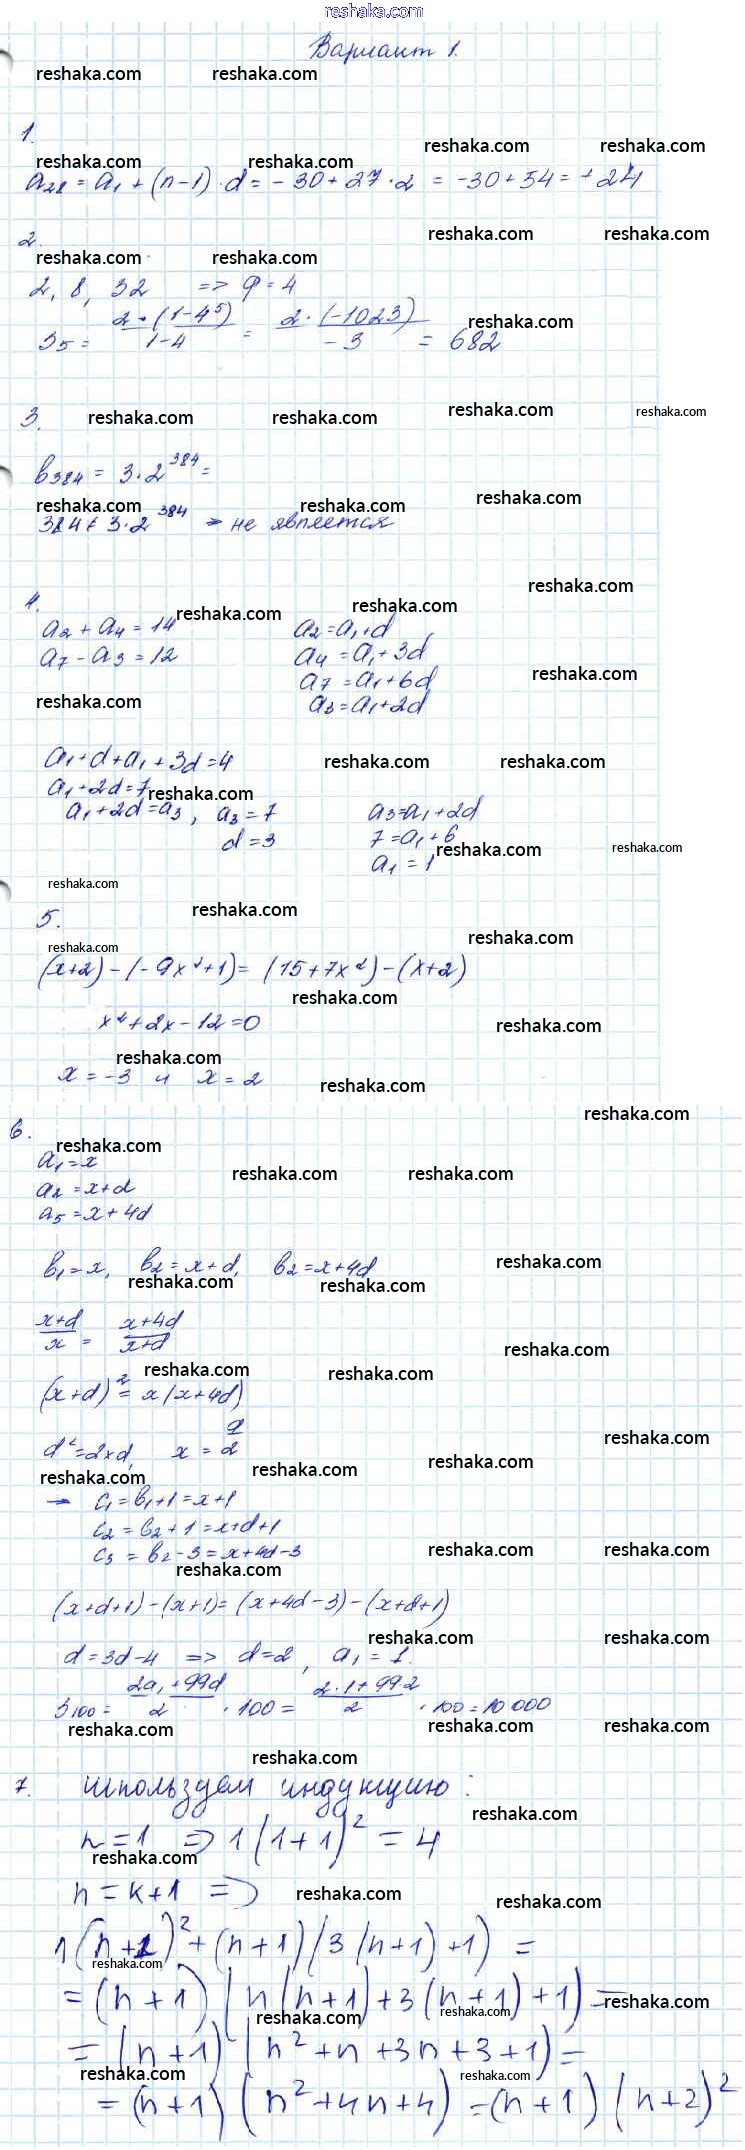 reshaka.com
Вариант 1.
reshaka.com reshaka.com
1.
reshaka.com reshaka.com
reshaka.com reshaka.com
a₂₈ = a₁ + (n-1)·d = -30+27·2 = -30+54 = +24
2.
reshaka.com reshaka.com
reshaka.com reshaka.com
2, 8, 32 => q = 4
S₅ = 2·(1-4⁵)/1-4 = 2·(-1023)/-3 = 682
reshaka.com
3.
reshaka.com reshaka.com reshaka.com reshaka.com
в₃₈₄ = 3·2³⁸⁴ =
reshaka.com reshaka.com reshaka.com
384 ≠ 3·2³⁸⁴ → не является
4.
reshaka.com
reshaka.com reshaka.com
a₂ + a₄ = 14 a₂ = a₁+d
a₇ - a₃ = 12 a₄ = a₁+3d
reshaka.com
a₇ = a₁+6d
reshaka.com
a₃ = a₁+2d
a₁+d+a₁+3d=4
reshaka.com reshaka.com
a₁+2d=7
reshaka.com
a₁+2d=a₃, a₃=7 a₃=a₁+2d
d=3 7=a₁+6
reshaka.com reshaka.com
a₁=1
reshaka.com
5.
reshaka.com
reshaka.com
reshaka.com
(x+2)-(-9x²+1)=(15+7x²)-(x+2)
reshaka.com
x²+2x-12=0
reshaka.com
reshaka.com
x=-3 и x=2
reshaka.com
reshaka.com
6.
reshaka.com
a₁=x
reshaka.com reshaka.com
a₂=x+d
a₅=x+4d
в₁=x, в₂=x+d, в₂=x+4d
reshaka.com
reshaka.com reshaka.com
x+d/x = x+4d/x+d
reshaka.com
reshaka.com reshaka.com
(x+d)²=x(x+4d)
reshaka.com
d²=2xd, x=d/2
reshaka.com reshaka.com reshaka.com
→ c₁=в₁+1=x+1
c₂=в₂+1=x+d+1
c₃=в₂-3=x+4d-3
reshaka.com reshaka.com
reshaka.com
(x+d+1)-(x+1)=(x+4d-3)-(x+d+1)
reshaka.com reshaka.com
d=3d-4 => d=2, a₁=1.
S₁₀₀ = 2a₁+99d/2 · 100 = 2·1+99·2/2 · 100 = 10 000
reshaka.com reshaka.com reshaka.com
reshaka.com
7. используем индукцию:
reshaka.com
n=1 => 1(1+1)²=4
reshaka.com
n=k+1 =>
reshaka.com reshaka.com
1(n+1)²+(n+1)(3(n+1)+1)=
reshaka.com
=(n+1)(n(n+1)+3(n+1)+1)=
reshaka.com
reshaka.com reshaka.com
=(n+1)(n²+n+3n+3+1)=
reshaka.com reshaka.com
=(n+1)(n²+4n+4)=(n+1)(n+2)²